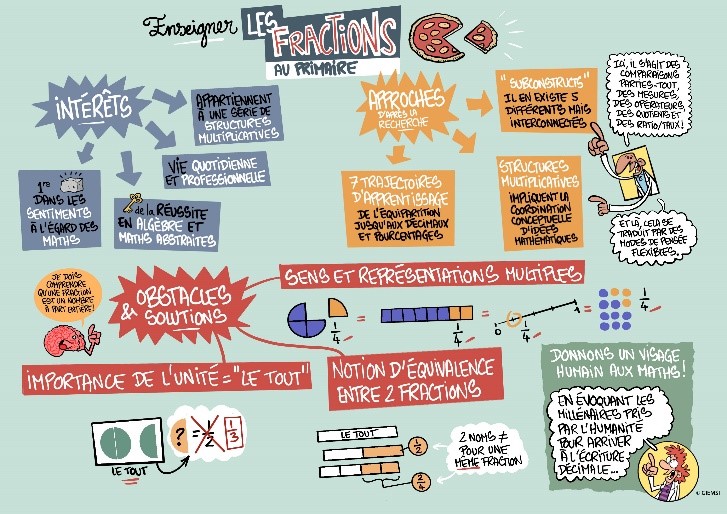 Enseigner LES
FRACTIONS
AU PRIMAIRE
INTÉRÊTS
APPARTIENNENT
À UNE SÉRIE DE
STRUCTURES
MULTIPLICATIVES
VIE QUOTIDIENNE
ET PROFESSIONNELLE
1re
DANS LES
SENTIMENTS
À L'ÉGARD DES
MATHS
de la RÉUSSITE
EN ALGÈBRE ET
MATHS ABSTRAITES
APPROCHES
D'APRÈS LA
RECHERCHE
"SUBCONSTRUCTS"
IL EN EXISTE 5
DIFFÉRENTS MAIS
INTERCONNECTÉS
ICI, IL S'AGIT DES
COMPARAISONS
PARTIES-TOUT,
DES MESURES,
DES OPÉRATEURS,
DES QUOTIENTS ET
DES RATIO/TAUX!
7 TRAJECTOIRES
D'APPRENTISSAGE
DE L'ÉQUIPARTITION
JUSQU'AUX DÉCIMAUX
ET POURCENTAGES
STRUCTURES
MULTIPLICATIVES
IMPLIQUENT LA
COORDINATION
CONCEPTUELLE
D'IDÉES
MATHÉMATIQUES
ET LÀ, CELA SE
TRADUIT PAR DES
MODES DE PENSÉE
FLEXIBLES.
JE DOIS
COMPRENDRE
QU'UNE FRACTION
EST UN NOMBRE
À PART ENTIÈRE!
OBSTACLES
& SOLUTIONS
SENS ET REPRÉSENTATIONS MULTIPLES
1/4 = 1/4 = 0 1/4 1 = 1/4
IMPORTANCE DE L'UNITÉ = "LE TOUT"
? = 1/2 1/3
LE TOUT
NOTION D'ÉQUIVALENCE
ENTRE 2 FRACTIONS
LE TOUT
1/2
2/4
2 NOMS ≠
POUR UNE
MÊME FRACTION
DONNONS UN VISAGE
HUMAIN AUX MATHS!
EN ÉVOQUANT LES
MILLÉNAIRES PRIS
PAR L'HUMANITÉ
POUR ARRIVER
À L'ÉCRITURE
DÉCIMALE...